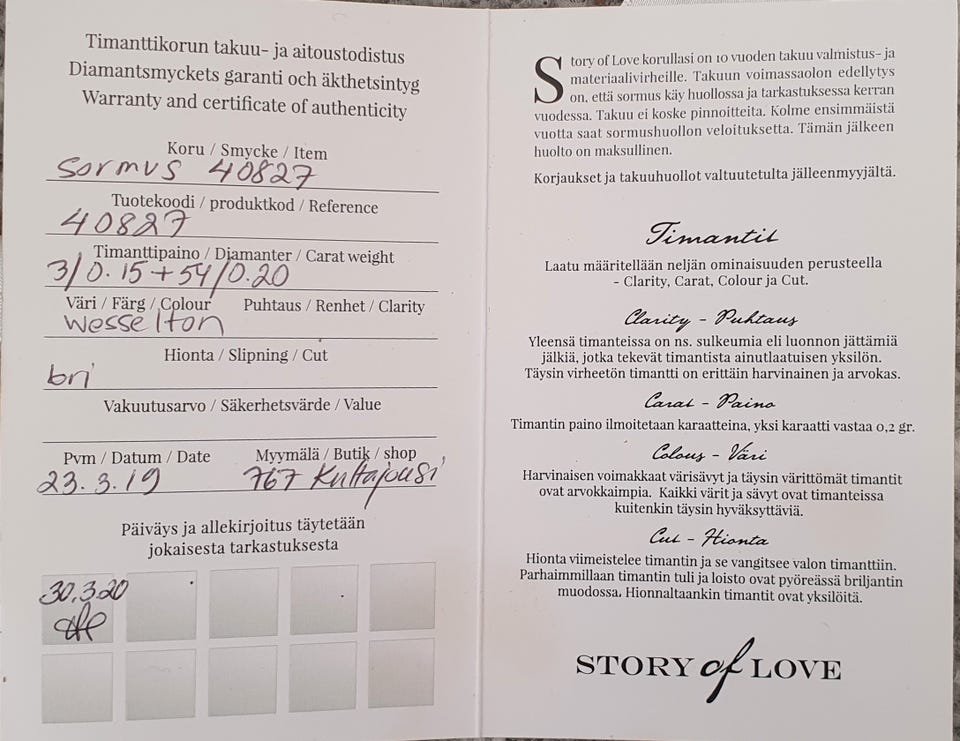 Timanttikorun takuu- ja aitoustodistus
Diamantsmyckets garanti och äkthetsintyg
Warranty and certificate of authenticity
Koru / Smycke / Item
Sormus 40827
Tuotekoodi / produktkod / Reference
40827
Timanttipaino / Diamanter / Carat weight
3/0.15+54/0.20
Väri / Färg / Colour Puhtaus / Renhet / Clarity
Wesselton
Hionta / Slipning / Cut
bri
Vakuutusarvo / Säkerhetsvärde / Value
Pvm / Datum / Date Myymälä / Butik / shop
23.3.19 767 Kultajousi
Päiväys ja allekirjoitus täytetään
jokaisesta tarkastuksesta
30.3.20
Story of Love korullasi on 10 vuoden takuu valmistus- ja
materiaalivirheille. Takuun voimassaolon edellytys
on, että sormus käy huollossa ja tarkastuksessa kerran
vuodessa. Takuu ei koske pinnoitteita. Kolme ensimmäistä
vuotta saat sormushuollon veloituksetta. Tämän jälkeen
huolto on maksullinen.
Korjaukset ja takuuhuollot valtuutetulta jälleenmyyjältä.
Timantit
Laatu määritellään neljän ominaisuuden perusteella
- Clarity, Carat, Colour ja Cut.
Clarity - Puhtaus
Yleensä timanteissa on ns. sulkeumia eli luonnon jättämiä
jälkiä, jotka tekevät timantista ainutlaatuisen yksilön.
Täysin virheetön timantti on erittäin harvinainen ja arvokas.
Carat - Paino
Timantin paino ilmoitetaan karaatteina, yksi karaatti vastaa 0,2 gr.
Colour - Väri
Harvinaisen voimakkaat värisävyt ja täysin värittömät timantit
ovat arvokkaimpia. Kaikki värit ja sävyt ovat timanteissa
kuitenkin täysin hyväksyttäviä.
Cut - Hionta
Hionta viimeistelee timantin ja se vangitsee valon timanttiin.
Parhaimmillaan timantin tuli ja loisto ovat pyöreässä briljantin
muodossa. Hionnaltaankin timantit ovat yksilöitä.
STORY of LOVE